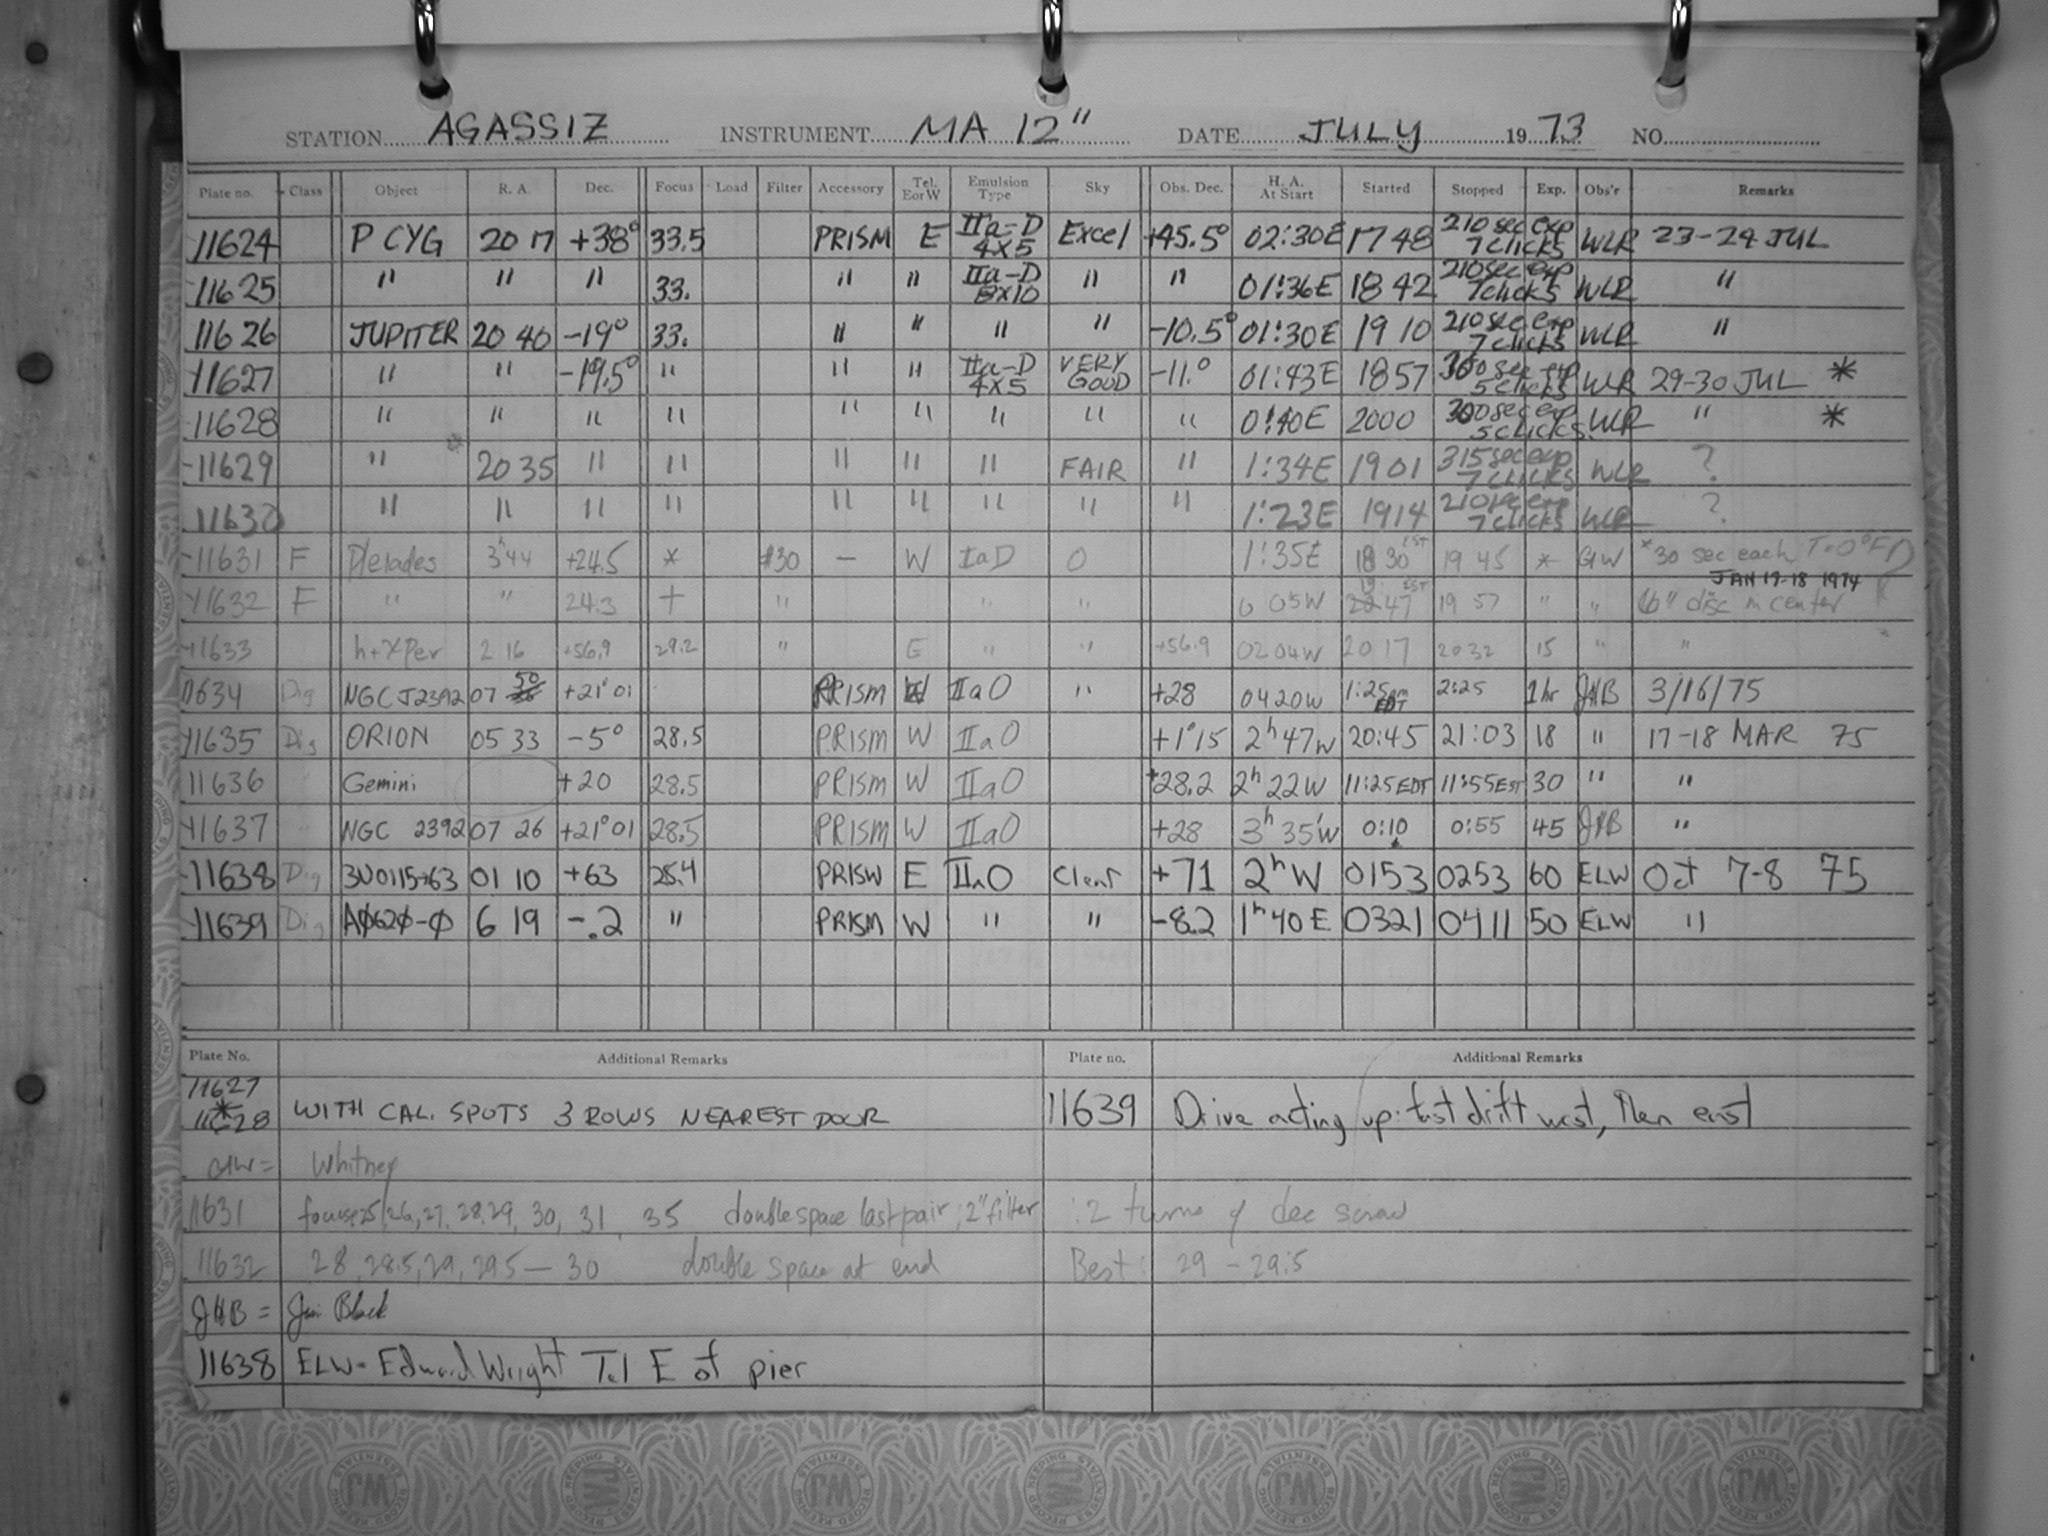 STATION AGASSIZ INSTRUMENT MA 12" DATE JULY 1973 NO.
Plate no. Class Object R. A. Dec. Focus Load Filter Accessory Tel. E or W Emulsion Type Sky Obs. Dec. H. A. At Start Started Stopped Exp. Obs'r Remarks
11624 P CYG 20 17 +38° 33.5 PRISM E IIa-D 4X5 Excel +45.5° 02:30E 17 48 210 sec exp 7 clicks WLR 23-24 JUL
11625 " " " 33. " " IIa-D 8x10 " " 01:36E 18 42 210 sec exp 7 clicks WLR "
11626 JUPITER 20 40 -19° 33. " " " " -10.5° 01:30E 19 10 210 sec exp 7 clicks WLR "
11627 " " -19.5° " " " IIa-D 4X5 VERY GOOD -11.° 01:43E 1857 300 sec exp 5 clicks WLR 29-30 JUL *
11628 " " " " " " " " " 0:40E 2000 300 sec exp 5 CLICKS WLR " *
11629 " 20 35 " " " " " FAIR " 1:34E 1901 315 sec exp 7 CLICKS WLR ?
11630 " " " " " " " " " 1:23E 1914 210 sec exp 7 clicks WLR ?
11631 F Pleiades 3h44 +24.5 * #30 - W IaD O 1:35E 18 30 EST 19 45 * GW *30 sec each T=0°F
JAN 17-18 1974
11632 F " " 24.3 + " " " 0 05W 19 47 EST 19 57 " " 6" disc in center
11633 h+χPer 2 16 +56.9 29.2 " E " " +56.9 02 04W 20 17 20 32 15 " "
11634 Dig NGC J2392 07 50 +21° 01 PRISM W IIaO " +28 04 20W 1:25am EDT 2:25 1hr JHB 3/16/75
11635 Dig ORION 05 33 -5° 28.5 PRISM W IIaO +1°15 2h 47W 20:45 21:03 18 " 17-18 MAR 75
11636 Gemini +20 28.5 PRISM W IIaO +28.2 2h 22W 11:25EDT 11:55EST 30 " "
11637 NGC 2392 07 26 +21° 01 28.5 PRISM W IIaO +28 3h 35'W 0:10 0:55 45 JHB "
11638 Dig 3U0115+63 01 10 +63 25.4 PRISM E IIaO Clear +71 2h W 0153 0253 60 ELW Oct 7-8 75
11639 Dig A0620-0 6 19 -.2 " PRISM W " " -8.2 1h 40 E 0321 0411 50 ELW "
Plate No. Additional Remarks Plate no. Additional Remarks
11627 * 11628 WITH CAL. SPOTS 3 ROWS NEAREST DOOR 11639 Drive acting up: fast drift west, then east
GW= Whitney
11631 focuses 25, 26, 27, 28, 29, 30, 31 35 double space last pair; 2" filter : 2 turns of dec screw
11632 28, 28.5, 29, 29.5 - 30 double space at end Best: 29 - 29.5
JHB = Jim Black
11638 ELW= Edward Wright Tel E of pier